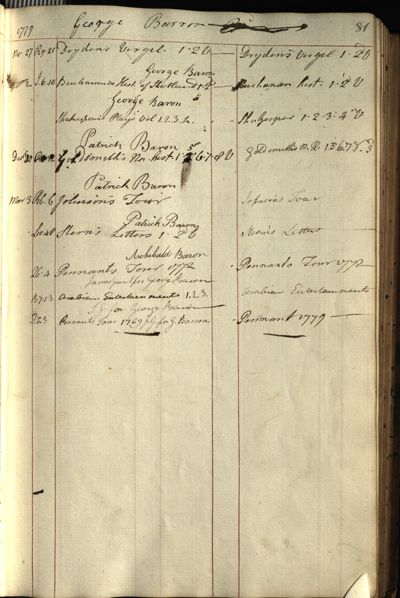 1779 George Barron 81
Nov 27 Drydens Vergel. 1. 2 V Drydens Vergel 1. 2 V
George Baron
2 S. 6. 10 Buchannans Hist. of Scotland 1. 2 Buchanan hist. 1. 2 V
George Baron
Shakespears Plays Vol 1. 2. 3. 4. Shakespers 1. 2. 3. 4 V
Patrick Baron
Goldsmiths Na. hist. 1. 6. 7. 8 V
Patrick Baron
Mar 3 6 Johnsons Tour Jonsons Tour
Patrick Baron
Sterns Letters 1. 2 V Sterns Letters
Archibald Baron
26. 4 Pennants Tour 1772 Pennants Tour 1772
for George Baron
Arabian Entertainments 1. 2. 3. Arabian Entertainments
for George Baron
Pennants Tour 1769 for G. Barron Pennant 1779